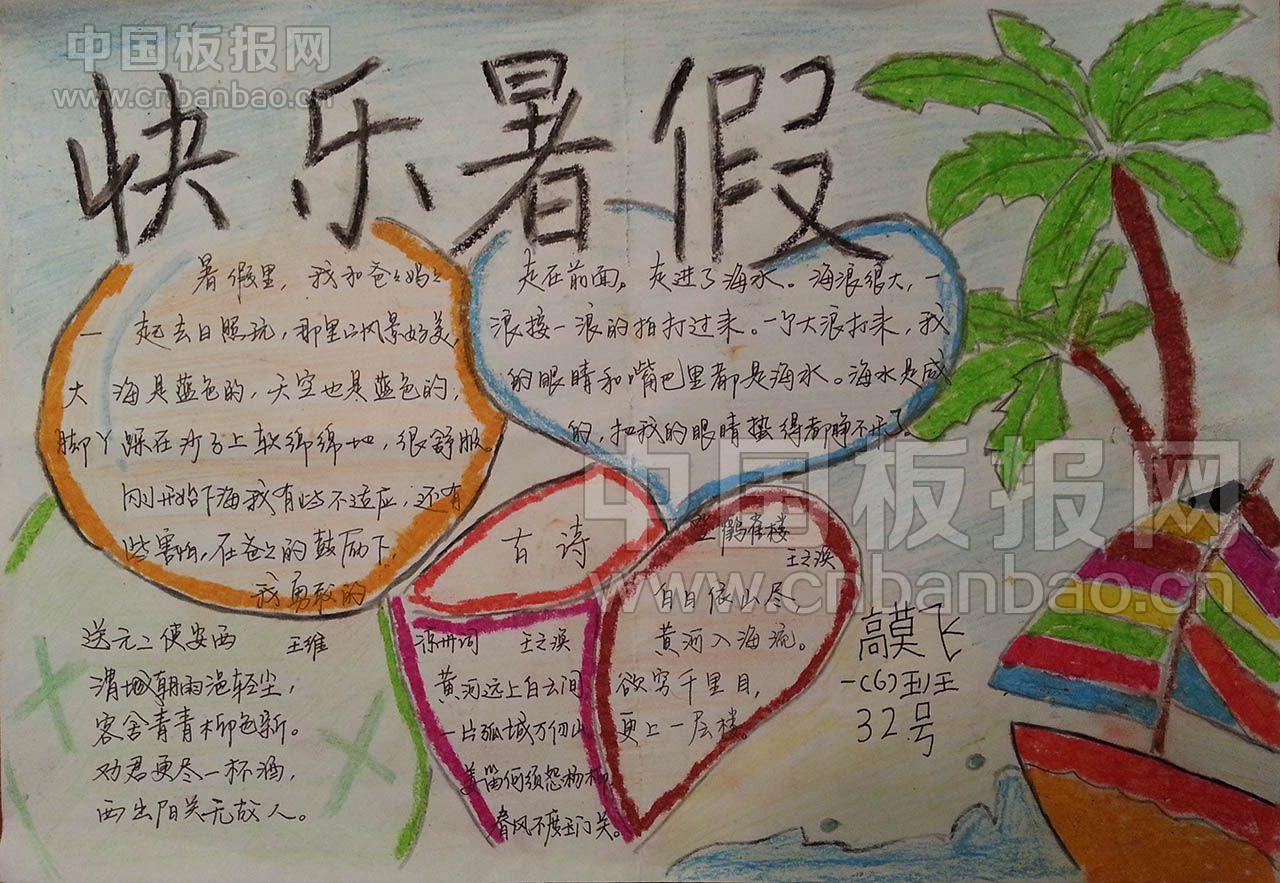 中国板报网
www.cnbanbao.cn
快乐暑假
暑假里，我和爸々妈々
一起去日照玩，那里的风景好美，
大海是蓝色的，天空也是蓝色的；
脚丫踩在沙子上软绵绵地，很舒服。
刚开始下海我有些不适应；还有
些害怕，在爸々的鼓励下，
我勇敢的
走在前面。走进了海水。海浪很大，一
浪接一浪的拍打过来。一个大浪打来，我
的眼睛和嘴巴里都是海水。海水是咸
的，把我的眼睛蛰得都睁不开了。
中国板报网
www.cnbanbao.cn
古诗
登鹳雀楼
王之涣
白日依山尽
黄河入海流。
欲穷千里目，
更上一层楼。
凉州词 王之涣
黄河远上白云间
一片孤城万仞山
羌笛何须怨杨柳
春风不度玉门关。
送元二使安西 王维
渭城朝雨浥轻尘，
客舍青青柳色新。
劝君更尽一杯酒，
西出阳关无故人。
高莫飞
一(6)班
32号